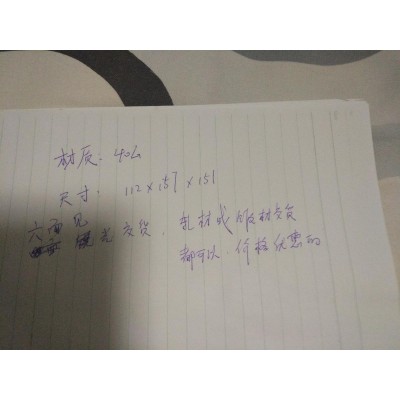 材质：40G
尺寸：112×157×151
六面见光交货，轧材或锻材交货
都可以，价格优惠的